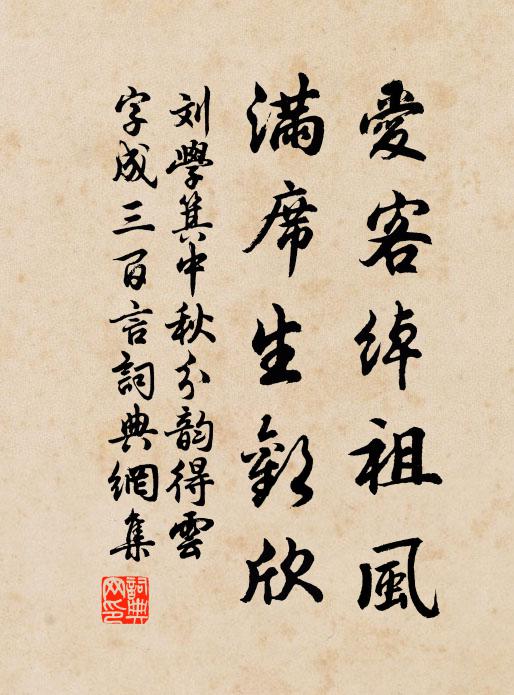 愛客綽祖風
滿席生歡欣
刘學箕中秋分韵得雲
字成三百言詞典網集
詞典
网印